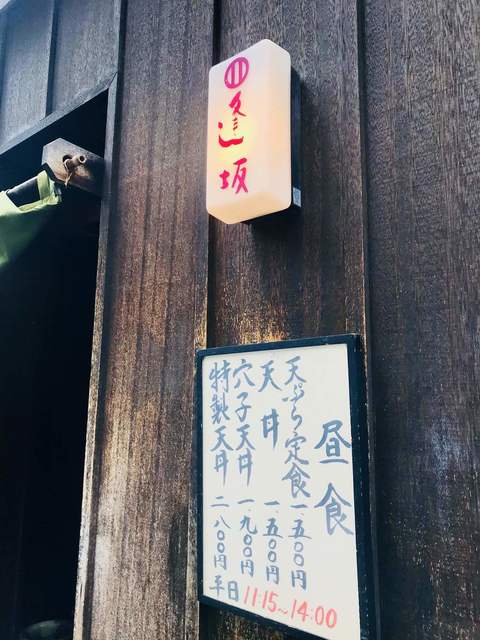 逢坂
昼食
天ぷら定食 一、五〇〇円
天丼 一、五〇〇円
穴子天丼 一、九〇〇円
特製天丼 二、八〇〇円
平日 11:15~14:00